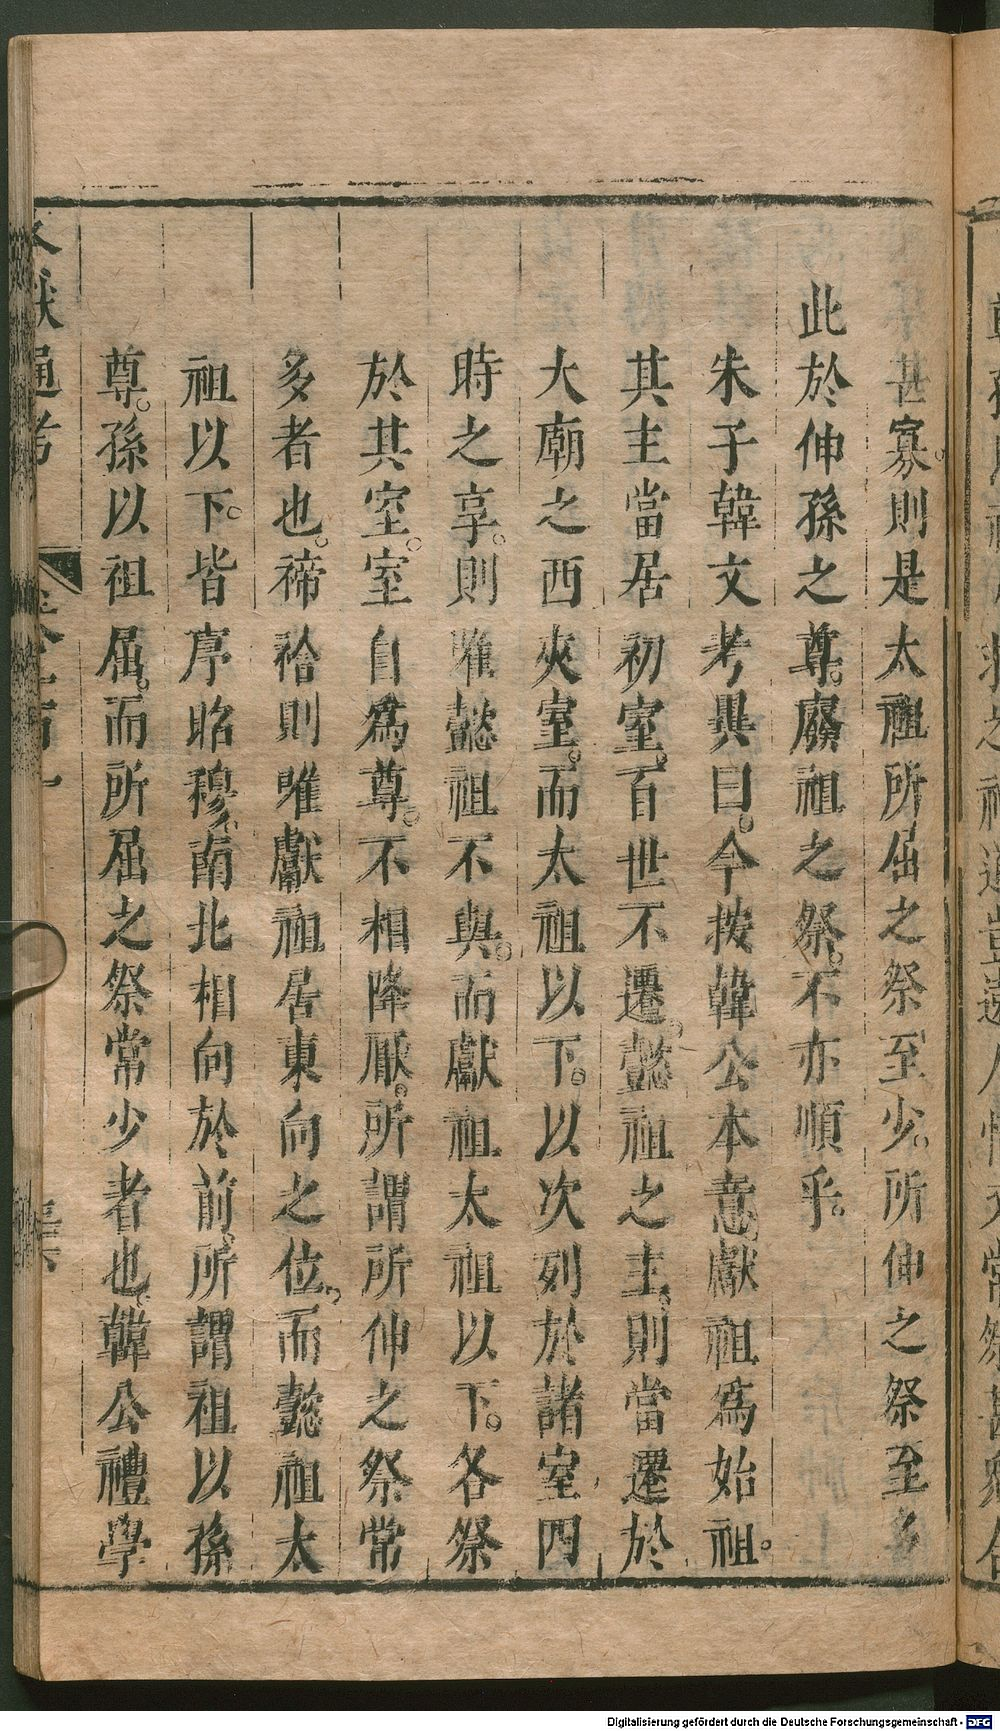 甚寡則是太祖所屈之祭至少所伸之祭至多
此於伸孫之尊廢祖之祭不亦順乎
朱子韓文考異曰今按韓公本意獻祖爲始祖
其主當居初室百世不遷懿祖之主則當遷於
大廟之西夾室而太祖以下以次列於諸室四
時之享則唯懿祖不與而獻祖太祖以下各祭
於其室室自爲尊不相降厭所謂所伸之祭常
多者也禘祫則唯獻祖居東向之位而懿祖太
祖以下皆序昭穆南北相向於前所謂祖以孫
尊孫以祖屈而所屈之祭常少者也韓公禮學
文獻通考
Digitalisierung gefördert durch die Deutsche Forschungsgemeinschaft - DFG